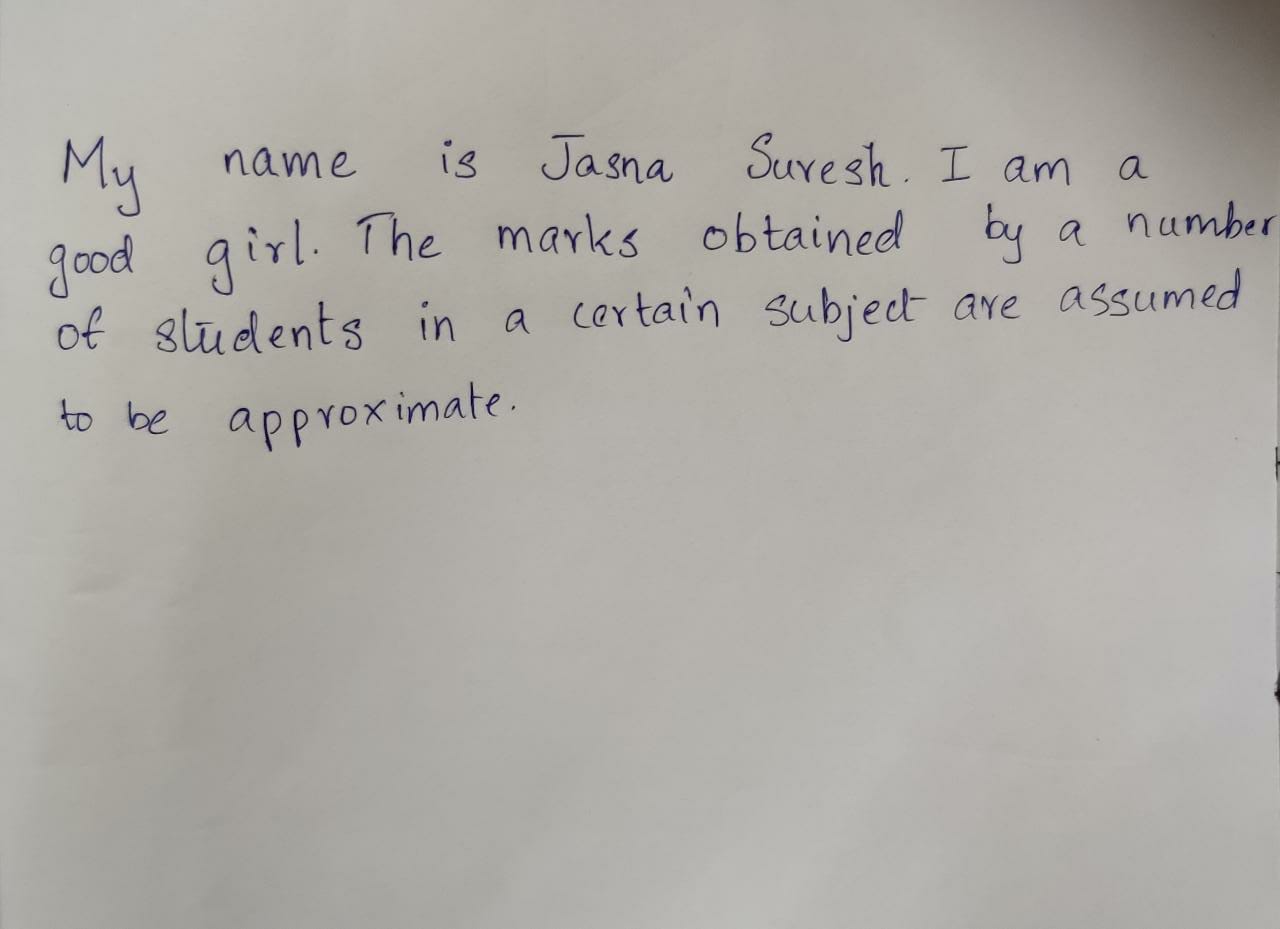 My name is Jasna Suresh. I am a
good girl. The marks obtained by a number
of students in a certain subject are assumed
to be approximate.